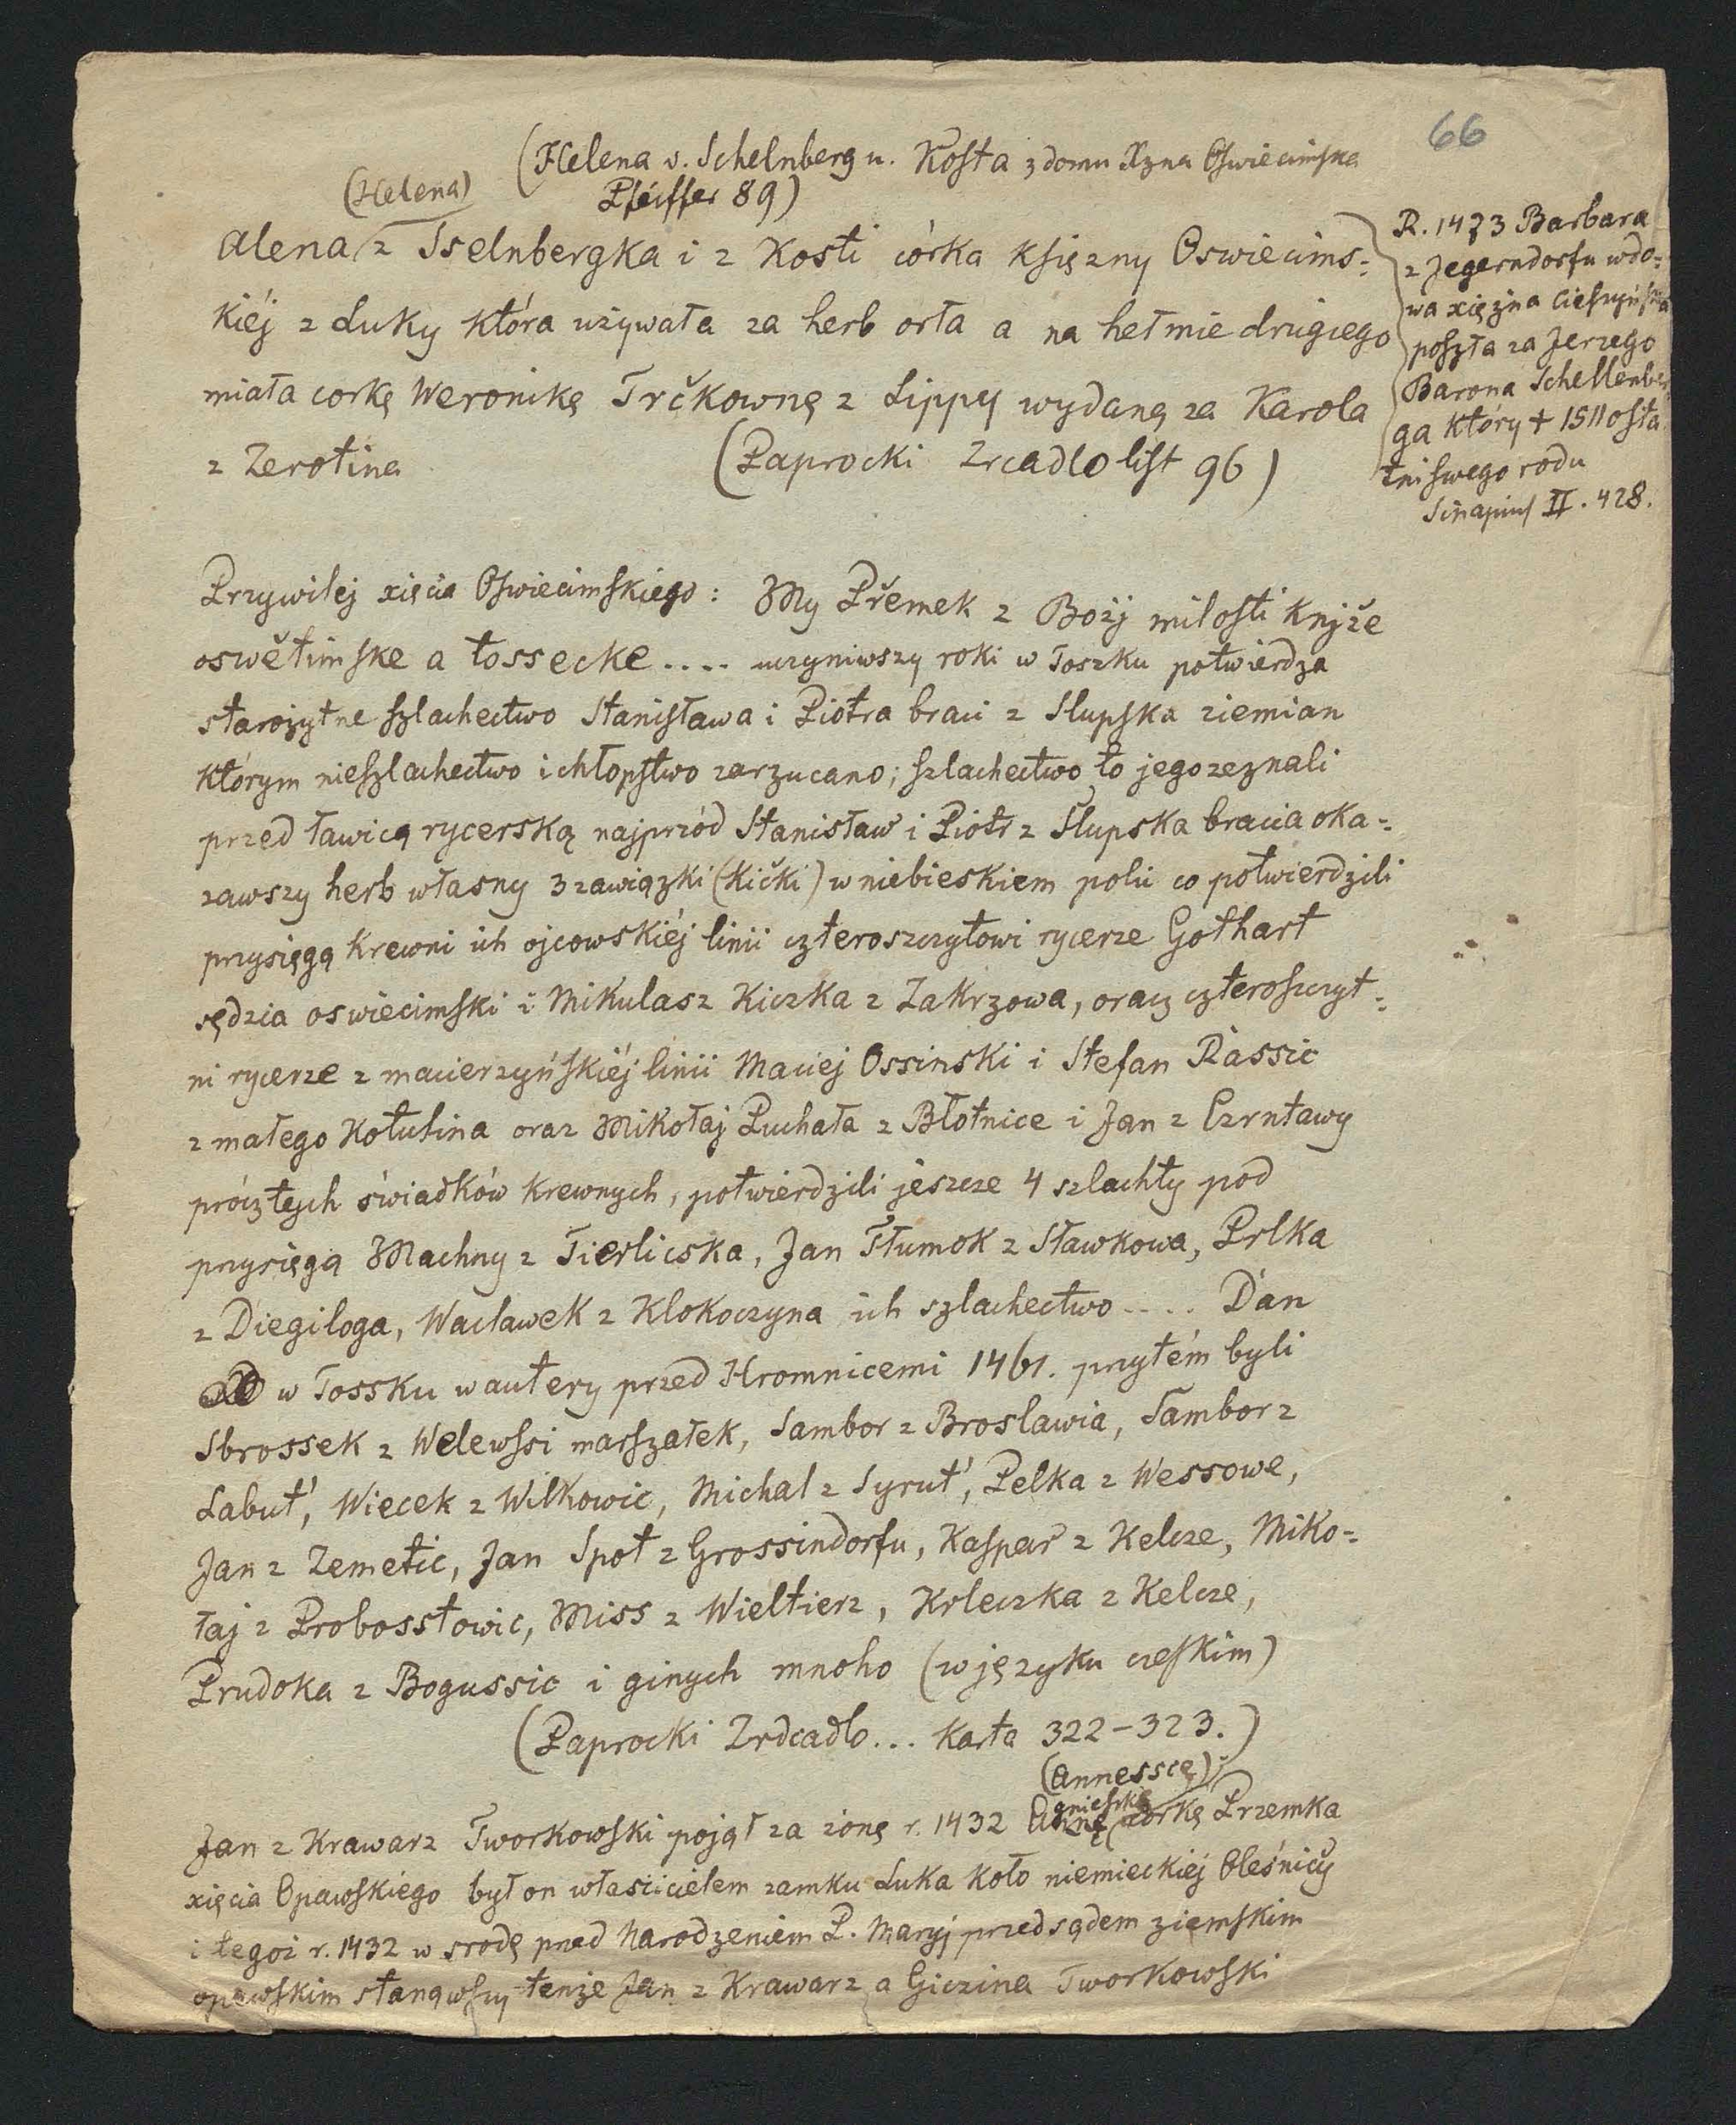 66
(Helena v. Schelnberg u. Kosta z domu Xzna Oswiecimska
Pfeiffer 89)
(Helena)
Alena z Sselnbergka i z Kosti córka Księzny Oswiecims=
kiéj z Luky która używała za herb orła a na hełmie drugiego
miała corkę Weronikę Trčkownę z Lippy wydaną za Karola
z Zerotina
(Paprocki Zrcadlo list 96)
R. 1473 Barbara
z Jegerndorfu wdo=
wa xiężna Cieszyńska
poszła za Jerzego
Barona Schellenber
ga który + 1511 osta
tni swego rodu
Sinapius II. 428.
Przywilej xięcia Oswiecimskiego: My Přemek z Božj milosti Knjže
oswětimske a tossecke .... uczyniwszy roki w Toszku potwierdza
starożytne szlachectwo Stanisława i Piotra braci z Slupska ziemian
którym nieszlachectwo i chłopstwo zarzucano; szlachectwo to jego zeznali
przed ławicą rycerską najprzód Stanisław i Piotr z Slupska bracia oka=
zawszy herb własny 3 zawiązki (Kički) w niebieskiem polu co potwierdzili
przysięgą Krewni ich ojcowskiéj linii czteroszczytowi rycerze Gothart
sędzia oswiecimski i Mikulasz Kiczka z Zakrzowa, oraz czteroszczyt=
ni rycerze z macierzyńskiéj linii Maciej Ossinski i Stefan Rassic
z małego Kotulina oraz Mikołaj Puchała z Błotnice i Jan z Czrntawy
prócz tych świadków Krewnych, potwierdzili jeszcze 4 szlachty pod
przysięgą Machny z Tierlicska, Jan Tłumok z Sławkowa, Prlka
z Diegiloga, Wacławek z Klokoczyna ich szlachectwo .... Dan
w Tossku w autery przed Hromnicemi 1461. przytém byli
Sbrossek z Welewssi marszałek, Sambor z Broslawia, Sambor z
Labut', Wiecek z Wilkowic, Michal z Syrut', Pelka z Wessowe,
Jan z Zemetic, Jan Spot z Grossindorfu, Kaspar z Kelcze, Miko=
łaj z Probosstowic, Miss z Wieltierz, Krleczka z Kelcze,
Prudoka z Bogussic i ginych mnoho (w języku czeskim)
(Paprocki Zrdcadlo... Karta 322-323.)
(Annesscę)
gnieszkę
Jan z Krawarz Tworkowski pojął za żonę r. 1432 Annę córkę Przemka
xięcia Opawskiego był on właścicielem zamku Luka koło niemieckiéj Oleśnicy
i tegoż r. 1432 w srodę przed Narodzeniem P. Maryj przed sądem ziemskim
opawskim stanąwszy tenże Jan z Krawarz a Giczina Tworkowski